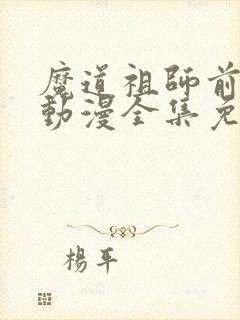 魔道祖師前
動漫全集免
楊平